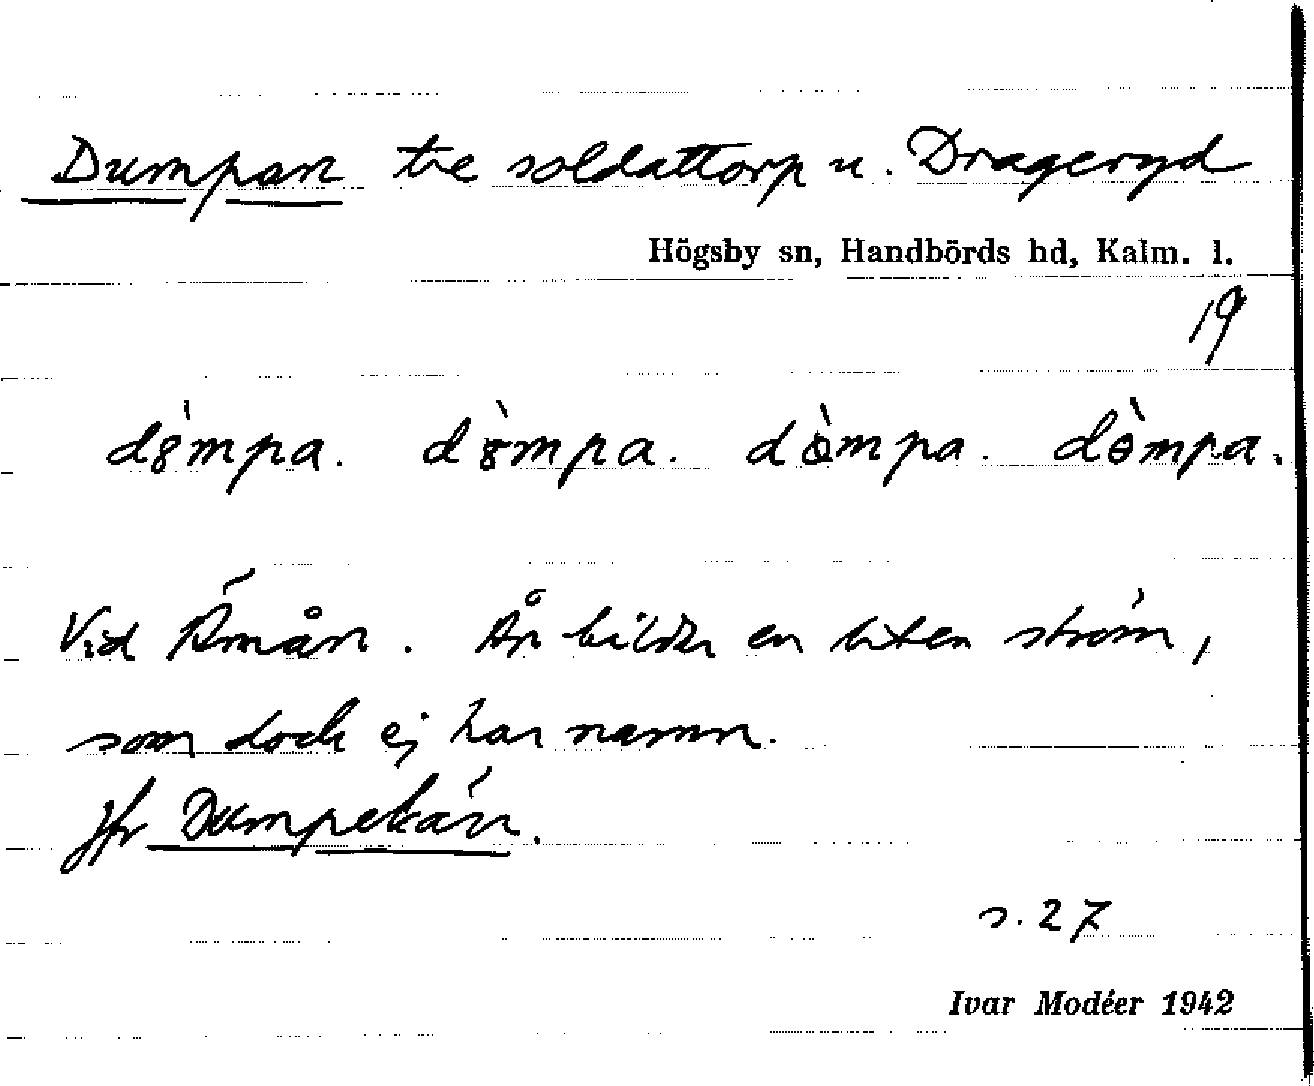 Dumpan tre soldattorp u. Drageryd
Högsby sn, Handbörds hd, Kalm. l.
19
dȣ̀mpa. dȣ̀mpa. dòmpa. dɵ̀mpa.
Vid Ämån. Ån bildar en liten ström,
som dock ej har namn.
Jfr Dumpekärr.
s. 27
Ivar Modéer 1942